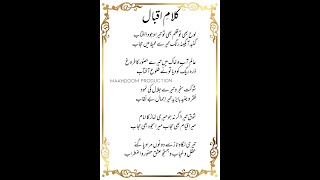 کلام اقبال
لوح بھی تو قلم بھی تو تیرا وجود الکتاب
گنبد آبگینہ رنگ تیرے محیط میں حباب
عالم آب و خاک میں تیرے حضور کا فروغ
ذرہ ریگ کو دیا تو نے طلوع آفتاب
MAKHDOOM PRODUCTION
شوکت سنجر و سلیم تیرے جلال کی نمود
فقر جنید و بایزید تیرا جمال بے نقاب
شوق تیرا اگر نہ ہو میری نماز کا امام
میرا قیام بھی حجاب میرا سجود بھی حجاب
تیری نگاہ ناز سے دونوں مراد پا گئے
عقل غیاب و جستجو عشق حضور و اضطراب